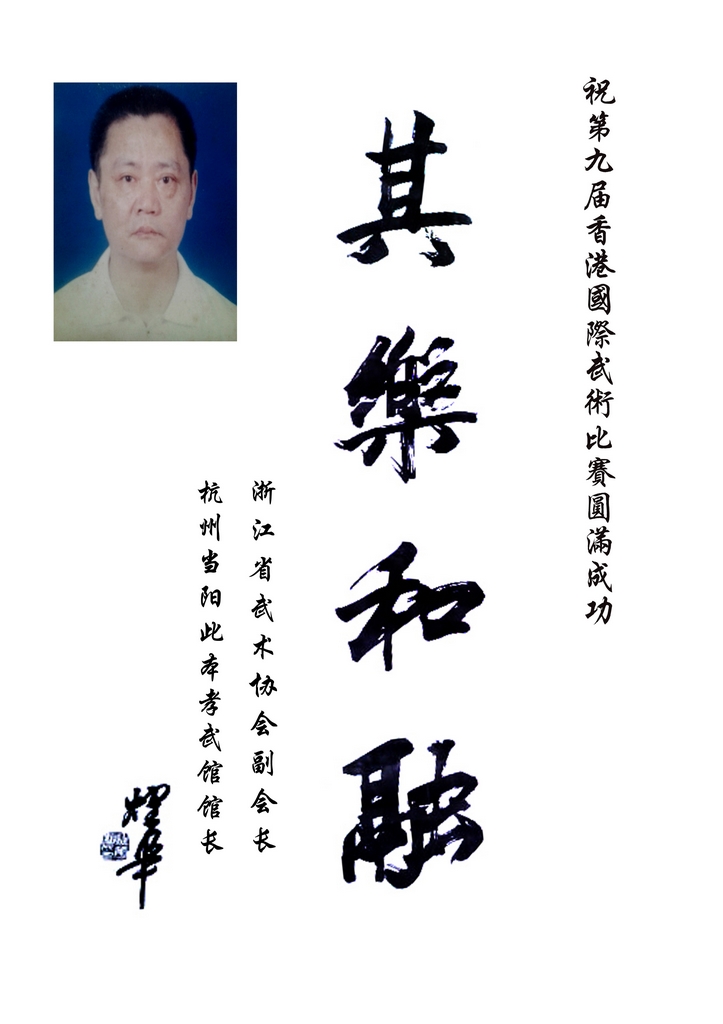 祝第九届香港國際武術比賽圓滿成功
其樂和融
浙江省武术协会副会长
杭州当阳此本孝武馆馆长